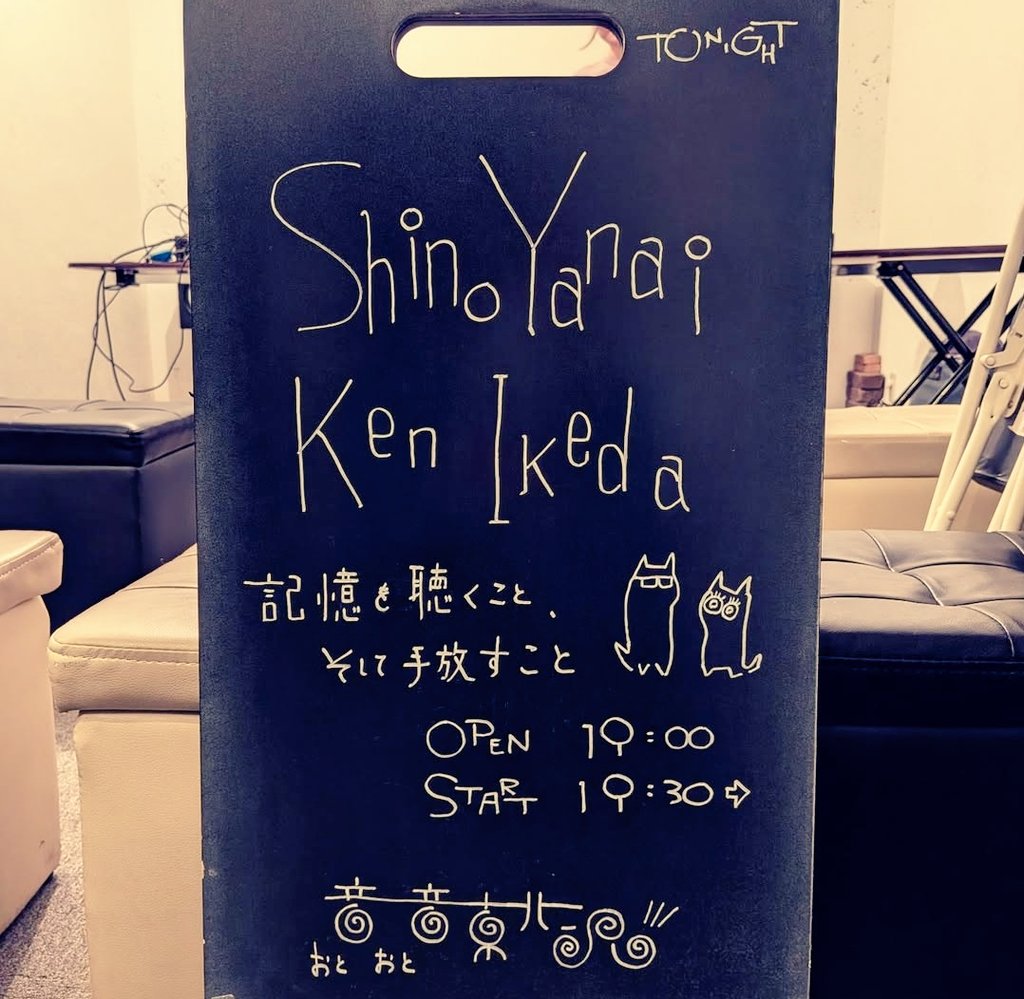 TONIGHT
Shino Yanai
Ken Ikeda
記憶を聴くこと、
そして手放すこと
OPEN 19:00
START 19:30⇨
音音東北
おと おと